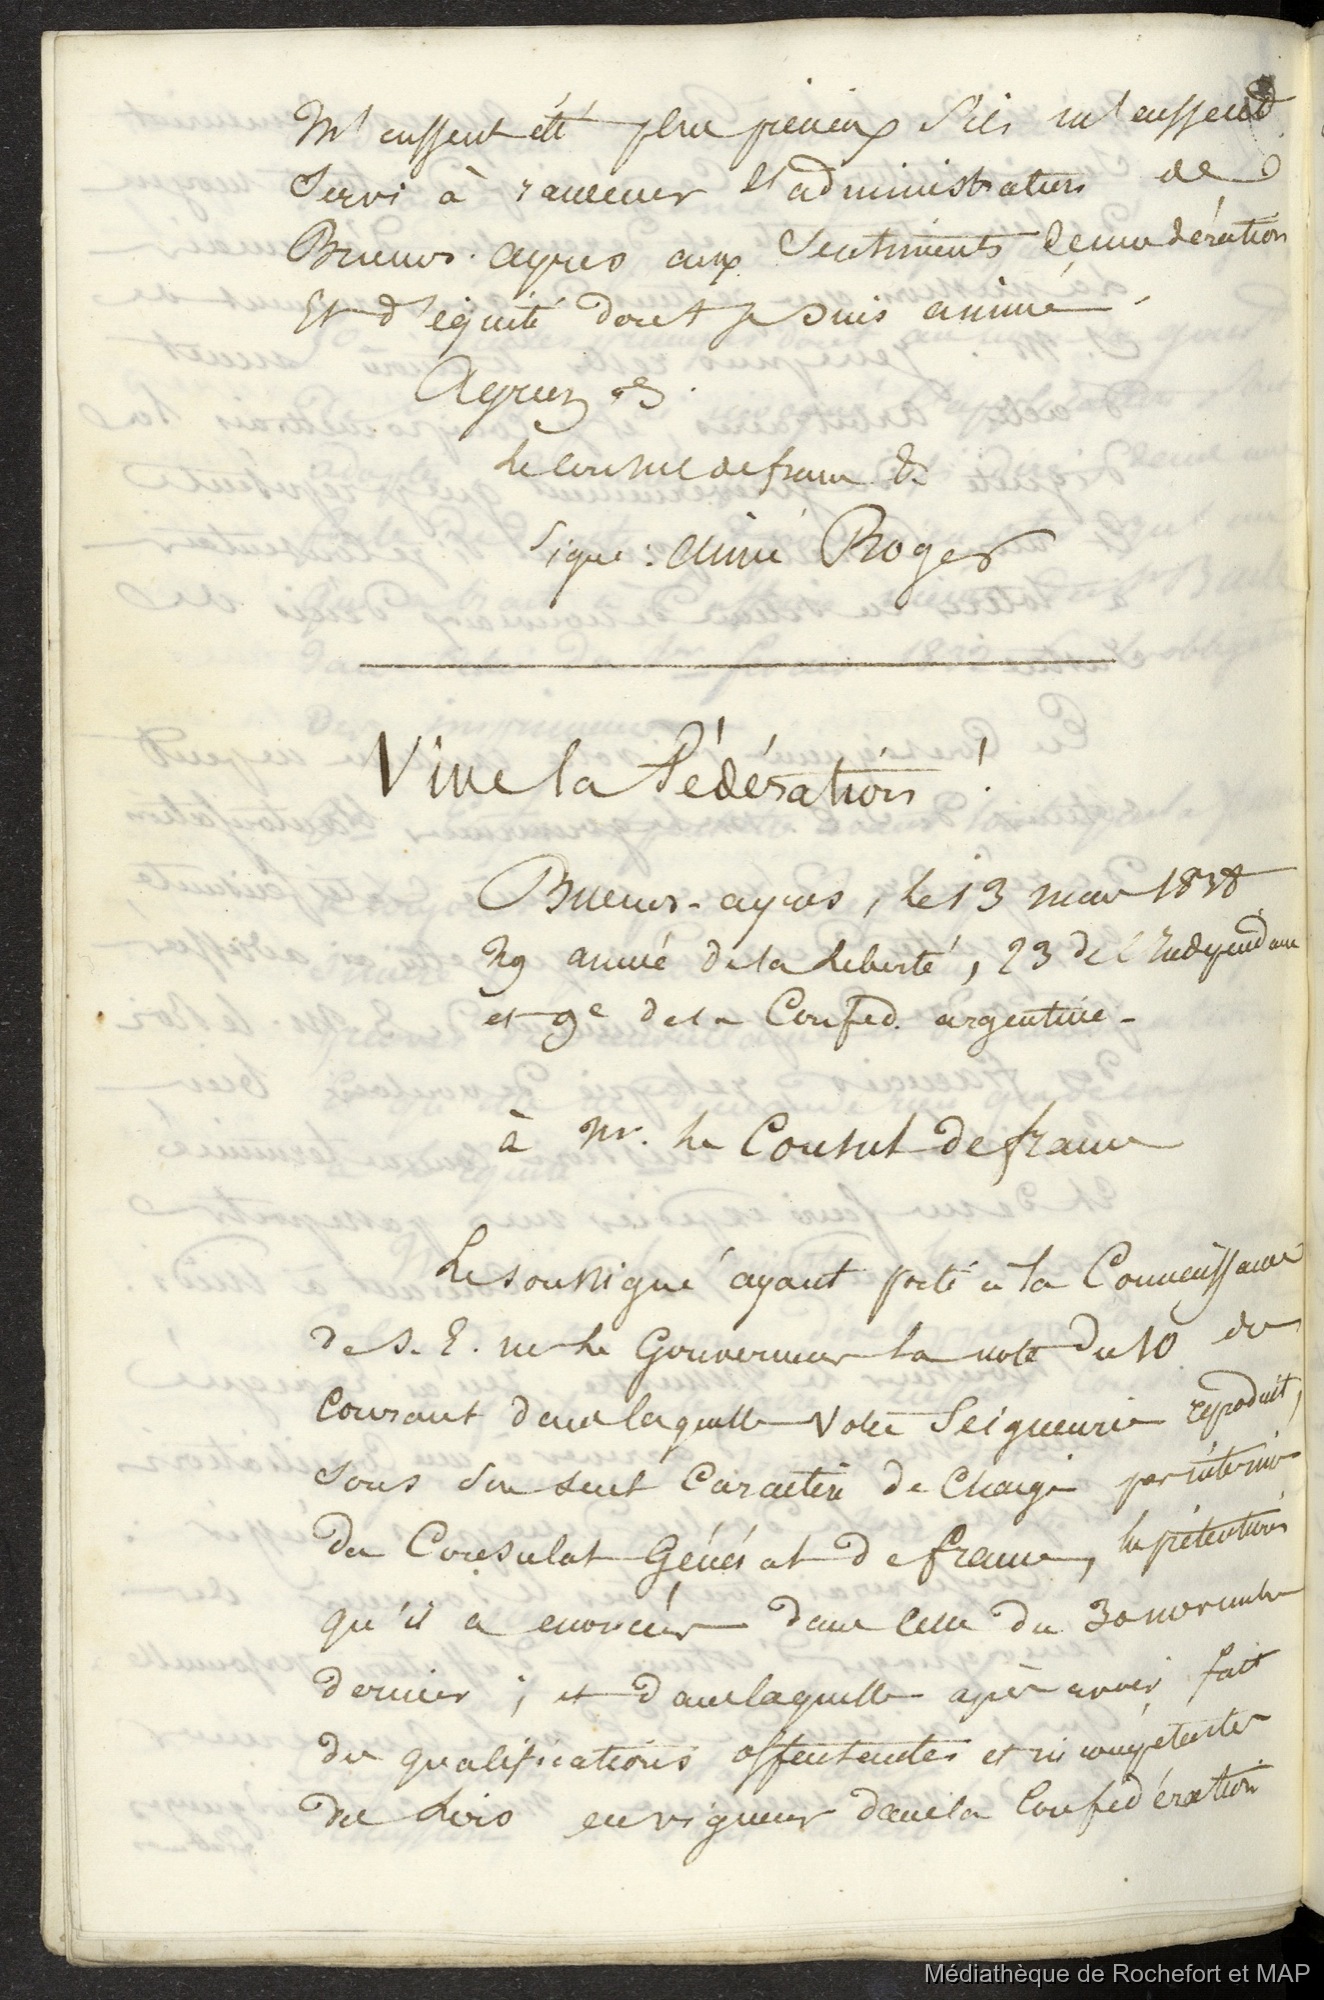 M'eussent été plus précieux s'ils m'eussent
Servi à ramener l'administration de
Buenos-ayres aux Sentiments de modération
Et d'équité dont je suis animé.
Agréez &a.
Le Consul de france &a
Signé : aimé Roger
Vive la Fédération !
Buenos-ayres, le 13 mars 1838
29 année de la Liberté, 23 de l'Independance
et 9e de la Confed. argentine -
à Mr. le Consul de france
Le soussigné ayant porté à la Connaissance
de S. E. mr le Gouverneur la note du 10 du
Courant dans laquelle Votre Seigneurie reproduit,
sous son seul Caractère de Chargé par intérim
du Consulat Général de france, les prétentions
qu'il a énoncées dans celle du 30 novembre
dernier ; et dans laquelle après avoir fait
des qualifications offensantes et incompétentes
des Lois en vigueur dans la Confédération
Médiathèque de Rochefort et MAP